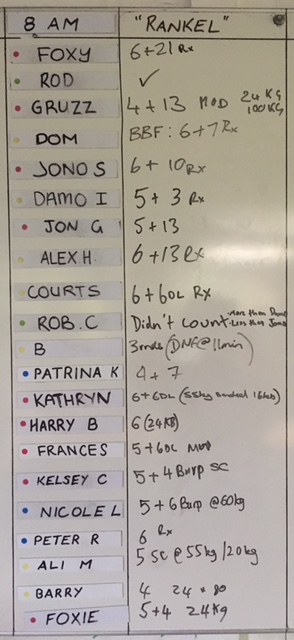 8 AM "RANKEL"
FOXY 6+21 Rx
ROD ✓
GRUZZ 4+13 MOD 24KG 100KG
DOM BBF: 6+7 Rx
JONO S 6+10 Rx
DAMO I 5+3 Rx
JON G 5+13
ALEX H 6+13 Rx
COURTS 6+6DL Rx
ROB.C Didn't count -More than -Less than Jono
B 3rnds (DNF@11min)
PATRINA K 4+7
KATHRYN 6+6DL (55kg 16kb)
HARRY B 6 (24KB)
FRANCES 5+6DL Mod
KELSEY C 5+4 Burp SC
NICOLE L 5+6 Burp @60kg
PETER R 6 Rx
ALI M 5 SC @55kg/20kg
BARRY 4 24
FOXIE 5+4 24kg